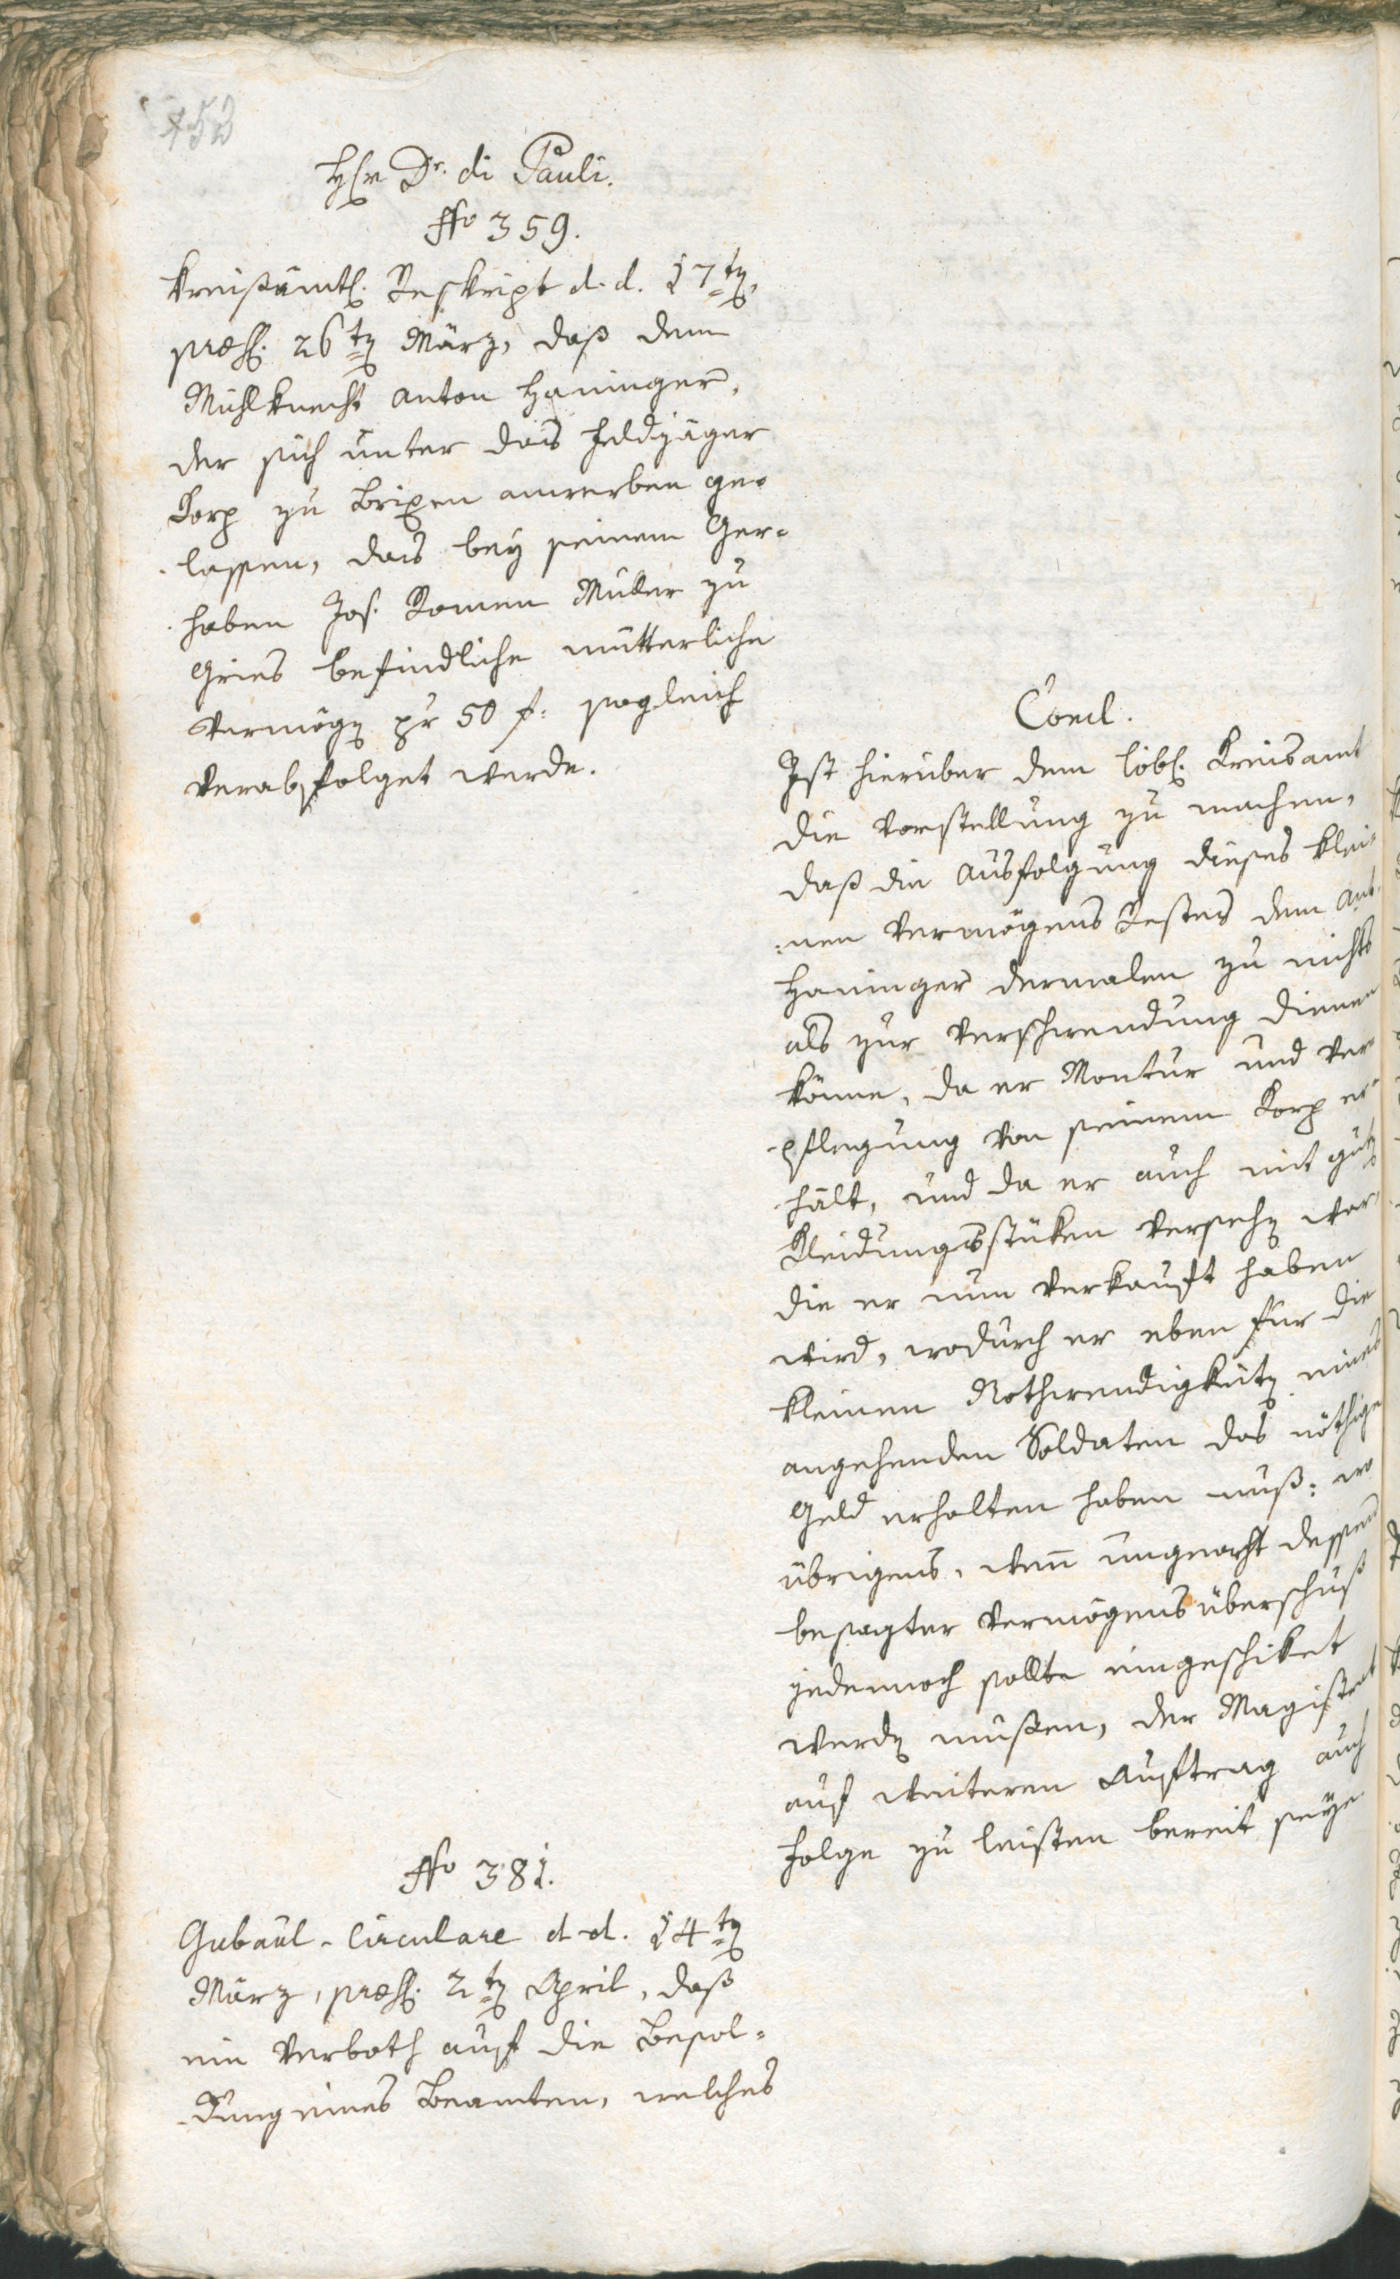 452
H(er)r Dr. di Pauli.
No 359.
Kreißämtl. Reskript d. d. 17ten,
præs. 26ten März, daß dem
Mühlknecht Anton Haninger,
der sich unter das Feldjäger
Corp zu Brixen anwerben ge-
lassen, das bey seinem Ger-
haben Jos. Ramen Müller zu
Gries befindliche mütterliche
Vermögen pr 50 f: sogleich
verabfolget werde.
Concl.
Ist hierüber dem löbl. Kreisamt
die Vorstellung zu machen,
daß die Ausfolgung dieses klei-
nen Vermögens Restes dem Ant.
Haninger dermalen zu nichts
als zur Verschwendung dienen
könne, da er Montur und Ver-
pflegung von seinem Corp er-
hält, und da er auch mit guten
Kleidungsstüken versehen war,
die er nun verkauft haben
wird, wodurch er eben für die
kleinen Nothwendigkeiten eines
angehenden Soldaten das nöthige
Geld erhalten haben muß: wo
übrigens, wenn ungeacht dessen
besagter Vermögensüberschuß
jedennoch sollte eingeschiket
werden müßen, der Magistrat
auf weiteren Auftrag auch
Folge zu leisten bereit seye.
No 381.
Gubaul-Circulare d. d. 14ten
März, præs. 2ten April, daß
ein Verboth auf die Besol-
dung eines Beamten, welches